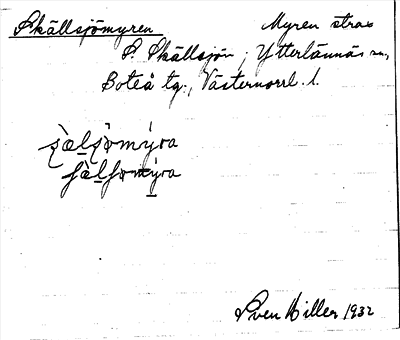 Skällsjömyren Myren strax
S. Skällsjön, Ytterlännäs sn,
Boteå tg., Västernorrl. l.
ʂæ̀lʂömýra
ʃæ̀lʃömýra
Sven Hiller 1932